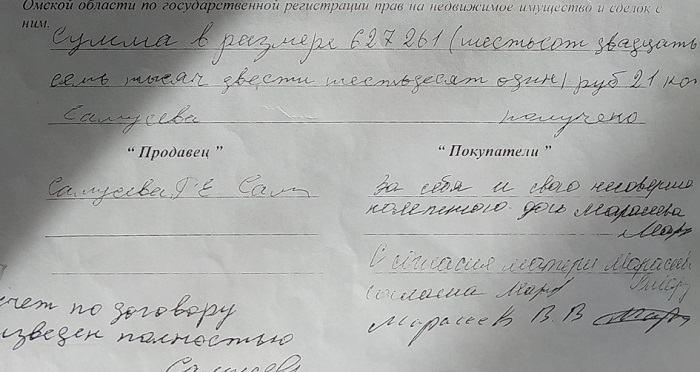 Омской области по государственной регистрации прав на недвижимое имущество и сделок с
ним.
Сумма в размере 627261 (шестьсот двадцать
семь тысяч двести шестьдесят один) руб 21 коп
Самусева получено
" Продавец "
" Покупатели "
Самусева Г Е Сам
за себя и свого несоверше
нолетнего дочь Марасева
Мар
С согласия матери Марасев
согласна Мар
Марасев В. В Мар
счет по договору
изведен полностью